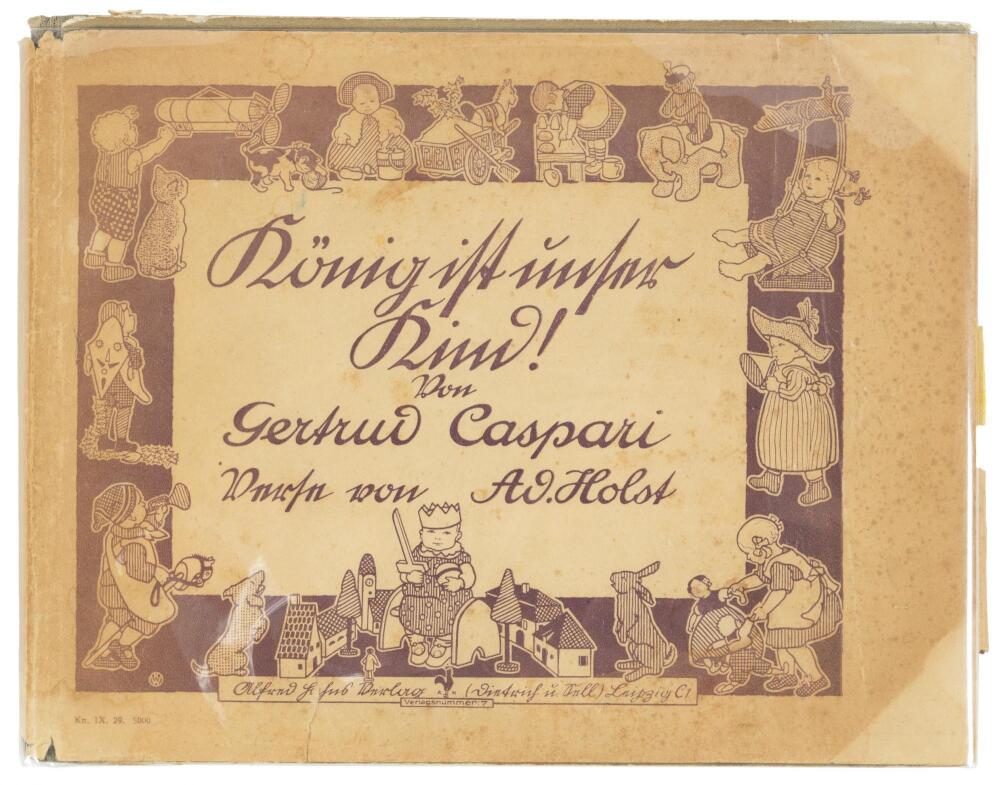 König ist unser
Kind!
Von
Gertrud Caspari
Verse von Ad. Holst
Alfred Hahns Verlag (Dietrich u. Sell) Leipzig C1
Verlagsnummer: 7
Kn. IX. 29. 5000